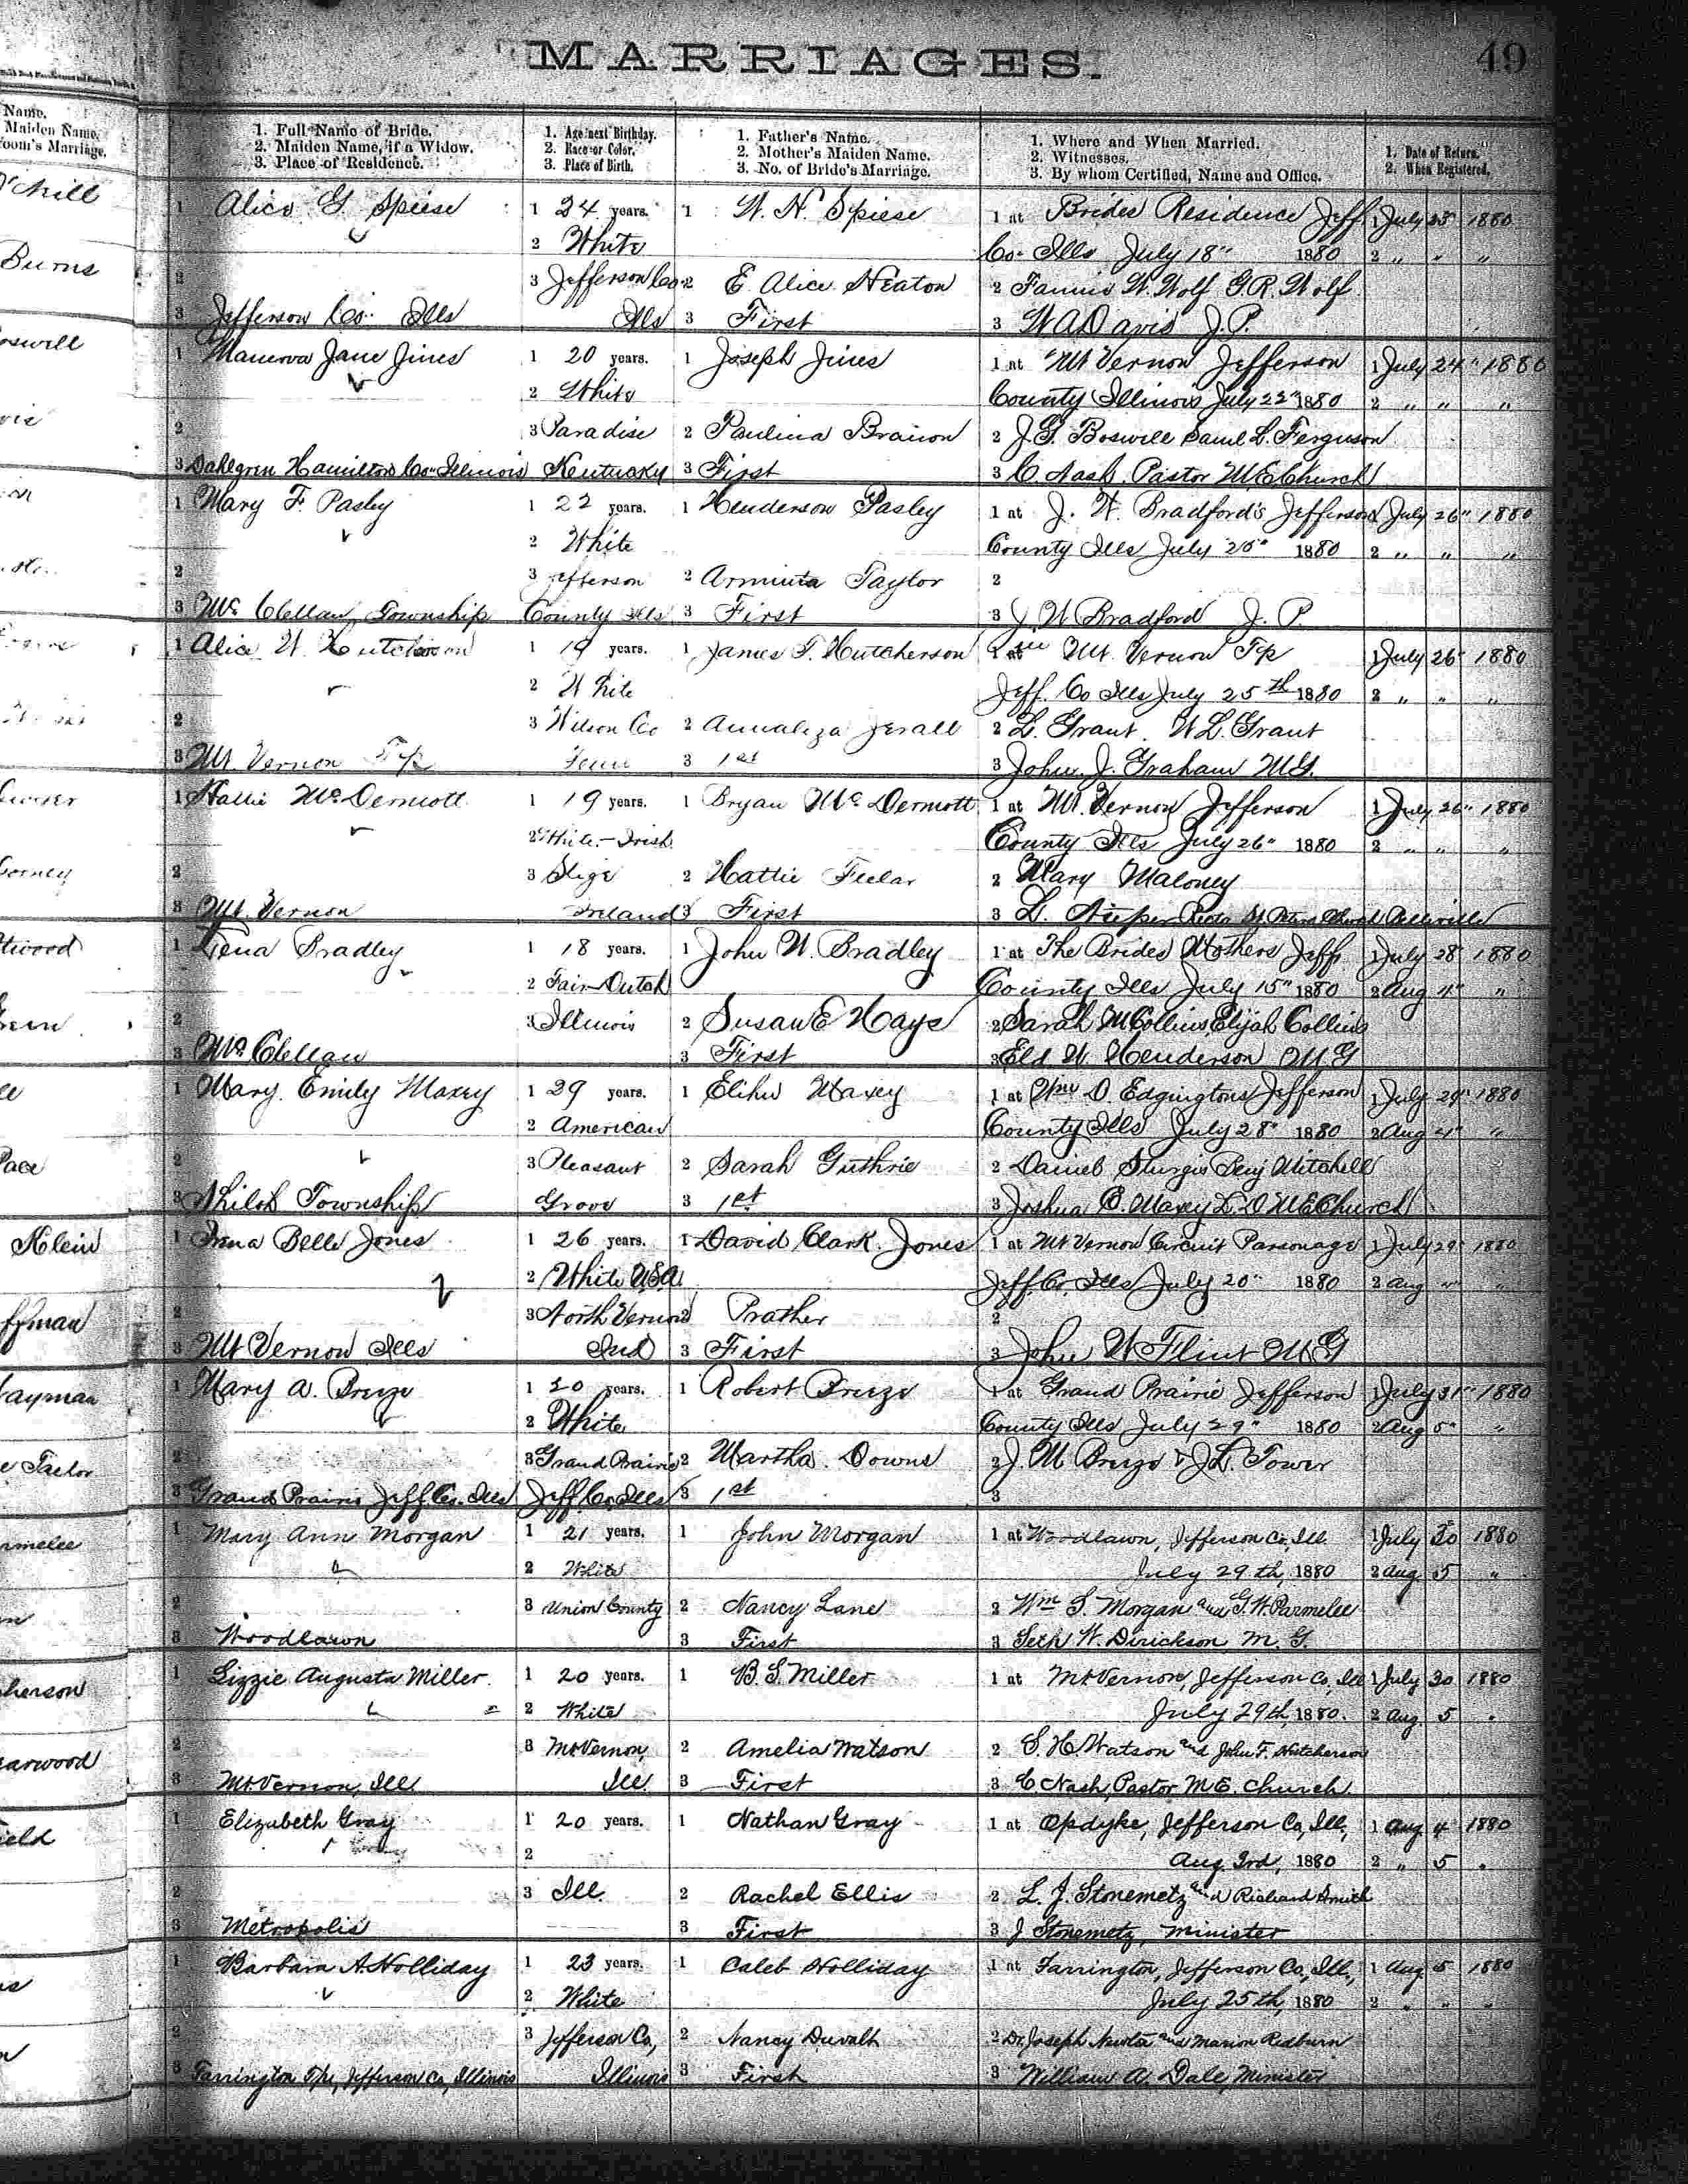 MARRIAGES.
49
Name.
Maiden Name,
oom's Marriage.
1. Full Name of Bride.
2. Maiden Name, if a Widow.
3. Place of Residence.
1. Age next Birthday.
2. Race or Color.
3. Place of Birth.
1. Father's Name.
2. Mother's Maiden Name.
3. No. of Bride's Marriage.
1. Where and When Married.
2. Witnesses.
3. By whom Certified, Name and Office.
1. Date of Return.
2. When Registered.
1 Alice G. Spiese 1 24 years. 1 W. N. Spiese 1 at Brides Residence Jeff 1 July 1880
2 White Co. Ills July 18" 1880 2 " " "
2 3 Jefferson Co. 2 E. Alice Heaton 2 Fannie W. Wolf G. R. Wolf
3 Jefferson Co. Ills Ills 3 First 3 W A Davis J. P.
1 Manerva Jane Jines 1 20 years. 1 Joseph Jines 1 at Mt Vernon Jefferson 1 July 24" 1880
2 White County Illinois July 22" 1880 2 " " "
2 3 Paradise 2 Paulina 2 J. G. Boswell Saml L. Ferguson
3 Dahlgren Hamilton Co. Illinois Kentucky 3 First 3 C Nash Pastor M E Church
1 Mary F. Pasley 1 22 years. 1 Henderson Pasley 1 at J. W. Bradford's Jefferson 1 July 26" 1880
2 White County Ills July 25" 1880 2 " " "
2 3 Jefferson 2 Arminta Taylor 2
3 Mc Clellan Township County Ills 3 First 3 J. W Bradford J. P.
1 Alice W. Hutcherson 1 19 years. 1 James T. Hutcherson 1 at Mt. Vernon Tp 1 July 26" 1880
2 White Jeff. Co Ills July 25th 1880 2 " " "
2 3 Wilson Co 2 Annaliza 2 L. Grant. W L. Grant
3 Mt. Vernon Tp Tenn 3 1st 3 John. J. Graham M.G.
1 Hallie Mc Dermott 1 19 years. 1 Bryan Mc Dermott 1 at Mt. Vernon Jefferson 1 July 26" 1880
2 White - Irish County Ills July 26" 1880 2 " " "
2 3 Sligo 2 Hattie 2 Mary Maloney
3 Mt. Vernon Ireland 3 First 3 L.
1 Lena Bradley 1 18 years. 1 John W. Bradley 1 at The Brides Mothers Jeff. 1 July 28" 1880
2 Fair-Dutch County Ills July 15" 1880 2 Aug 4" "
2 3 Illinois 2 Susan E Hays 2 Sarah M Collins, Elijah Collins
3 Mc Clellan 3 First 3 Eld W. Henderson M G
1 Mary. Emily Maxey 1 29 years. 1 Elihu Maxey 1 at Wm D. Edgingtons Jefferson 1 July 29" 1880
2 American County Ills July 28" 1880 2 Aug 4" "
2 3 Pleasant 2 Sarah Guthrie 2 Daniel Sturgis Benj Mitchell
3 Shiloh Township Grove 3 1st 3 Joshua C. Maxey L. D M E Church
1 Anna Belle Jones 1 26 years. 1 David Clark. Jones 1 at Mt Vernon Circuit Parsonage 1 July 29" 1880
2 White U.S.A. Jeff. Co. Ills July 20" 1880 2 Aug "
2 3 North Vernon 2 Prather 2
3 Mt Vernon Ills Ind 3 First 3 John W Flint M G
1 Mary A. Breeze 1 20 years. 1 Robert Breeze 1 at Grand Prairie Jefferson 1 July 31" 1880
2 White County Ills July 29" 1880 2 Aug 5" "
2 3 Grand Prairie 2 Martha. Downs 2 J. M Breeze & J. L. Tower
3 Grand Prairie Jeff Co. Ills Jeff Co. Ills 3 1st 3
1 Mary Ann Morgan 1 21 years. 1 John Morgan 1 at Woodlawn, Jefferson Co, Ill. 1 July 30 1880
2 White July 29th, 1880 2 Aug 5 "
2 3 Union County 2 Nancy Lane 2 Wm S. Morgan and G. W. Parmelee
3 Woodlawn 3 First 3 Seth W. Dirickson M. G.
1 Lizzie Augusta Miller 1 20 years. 1 B. S. Miller 1 at Mt Vernon, Jefferson Co, Ill 1 July 30 1880
2 White July 29th, 1880. 2 Aug. 5 "
2 3 Mt Vernon, 2 Amelia Watson 2 S. H. Watson and John F. Hutcherson
3 Mt Vernon, Ill. Ill. 3 First 3 C Nash, Pastor M. E. Church.
1 Elizabeth Gray 1 20 years. 1 Nathan Gray 1 at Opdyke, Jefferson Co, Ill, 1 Aug 4 1880
2 Aug. 3rd, 1880 2 " 5 "
2 3 Ill. 2 Rachel Ellis 2 L. J. Stonemetz and Richard Smith
3 Metropolis 3 First 3 J Stonemetz, Minister
1 Barbara A. Holliday 1 23 years. 1 Caleb Holliday 1 at Farrington, Jefferson Co., Ill., 1 Aug. 5 1880
2 White July 25th, 1880 2 " " "
2 3 Jefferson Co, 2 Nancy Duvall 2 Dr. Joseph and Marion Redburn
3 Farrington Tp, Jefferson Co, Illinois Illinois 3 First 3 William A. Dale, Minister